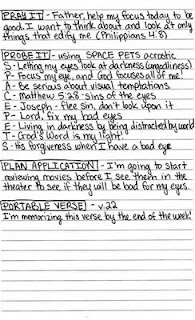 PRAY IT - Father, help my focus today to be
good. I want to think about and look at only
things that edify me (Philippians 4:8)
PROBE IT - using SPACE PETS acrostic
S - Letting my eyes look at darkness (ungodliness)
P - Focus my eye, and God focuses all of me!
A - Be serious about visual temptations
C - Matthew 5:28 sins of the eyes
E - Joseph - flee sin, don't look upon it
P - Lord, fix my bad eyes
E - Living in darkness by being distracted by world
T - God's Word is my light!
S - His forgiveness when I have a bad eye
PLAN APPLICATION - I'm going to start
reviewing movies before I see them in the
theater to see if they will be bad for my eyes.
PORTABLE VERSE - v.22
I'm memorizing this verse by the end of the week!